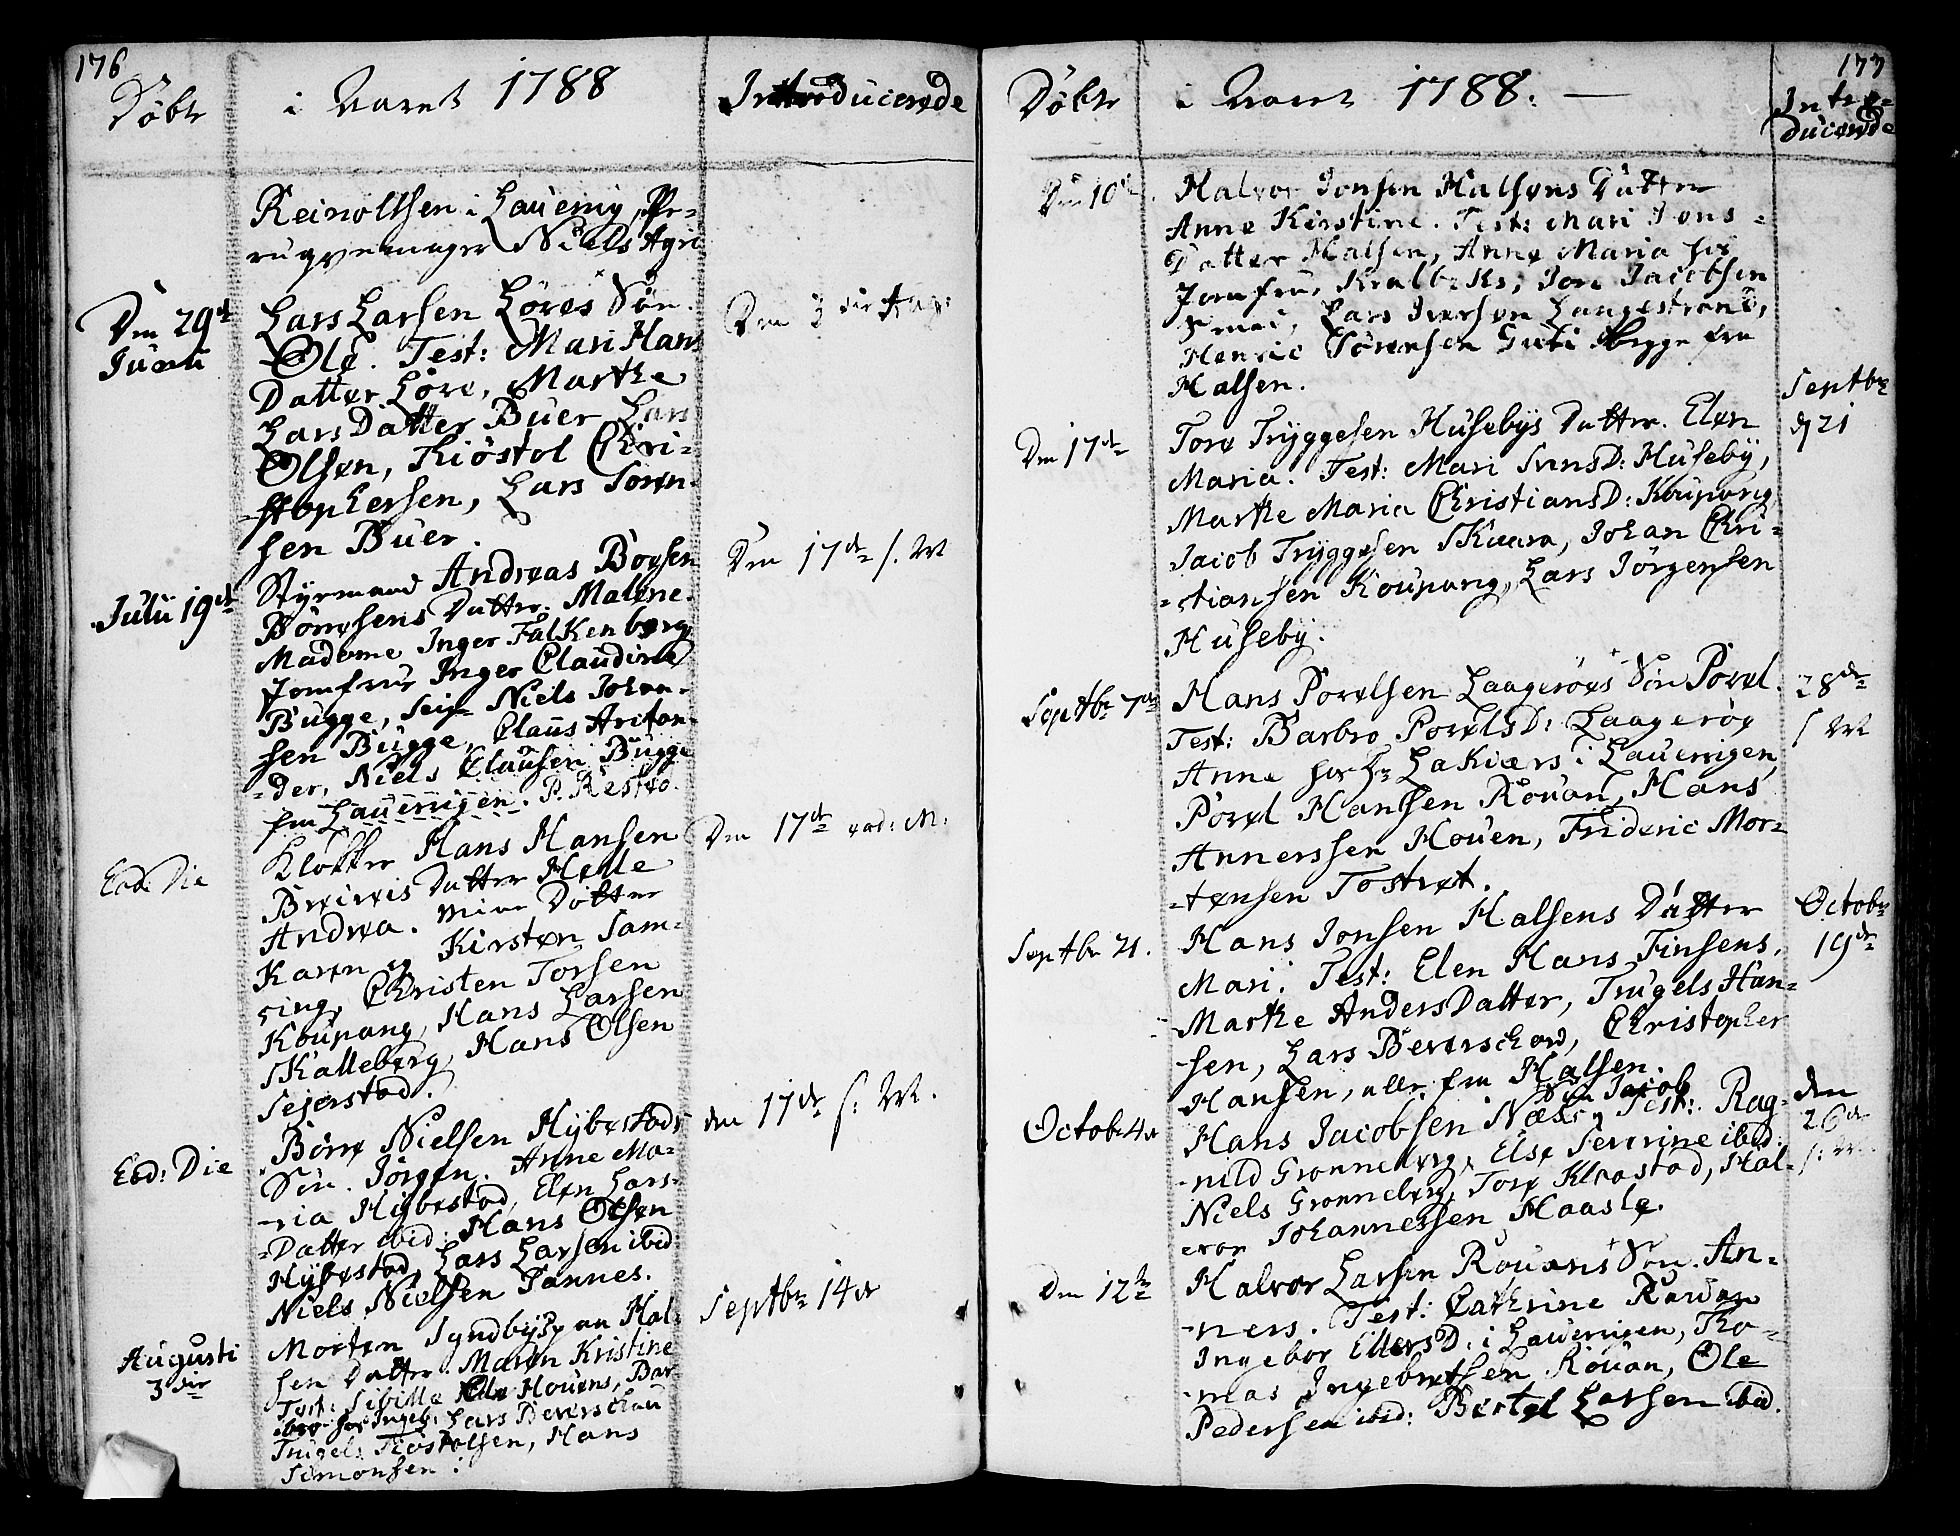 176
Döbte i Aaret 1788 Introducerede
Reinoltsen i Laurvig, Pe-
rugvemager Niels Agri
Den 29de Junii
Lars Larsen Löves Sön
Ole. Test: Mari Hans
Datter Löve, Marthe
Lars Datter Buer, Lars
Olsen, Kiöstol Chri-
stophersen, Lars Sören-
sen Buer.
Den 3die Aug:
Julii 19de
Styrmand Andreas Boesen
Börresens Datter. Malene.
Madame Inger Falkenberg
Jomfrue Inger Claudine
Bugge, Seigr Niels Johan-
sen Bugge, Claus Anton-
der, Niels Clausen Bugge
fra Laurvigen. P. Resto.
Den 17de s. M
Eod: Die
Klokker Hans Hansen
Breivis Datter Helle
Andrea. mine Döttre
Karen og Kirsten Sam-
sing, Christen Torsen
Koupang, Hans Larsen
Skalleberg, Hans Olsen
Sejerstad.
Den 17de eod: M:
Eod: Die
Börre Nielsen Hybestads
Sön. Jörgen. Anne Ma-
ria Hybestad, Elen Lars-
Datter ibid: Hans Olsen
Hybestad, Lars Larsen ibid:
Niels Nielsen Sannes.
den 17de s: M.
Augusti 3die
Morten Syndbye paa Hal-
sen Datter. Maren Kristine
Test: Sibilla Houens, Bar-
bro Ingeb: Lars Beverschau
Trugels Kiöstolsen, Hans
Simonsen:
Septbr 14de
177
Döbte i Aaret 1788. — Intro-
ducerede
Den 10de.
Halvor Jonsen Halsens Datter
Anne Kirstine. Test: Mari Jons-
Datter Halsen, Anne Maria hos
Jomfrue Kralbeks, Jon Jacobsen
Lars Iversen Langestrand,
Henric Sörensen begge fra
Halsen.
Den 17de
Tore Tryggesen Husebys Datter. Elen
Maria. Test: Mari SvensD: Huseby,
Marthe Maria ChristiansD: Koupang
Jacob Tryggesen Skaara, Johan Chri-
stiansen Koupang, Lars Jörgensen
Huseby.
Septbr
d 21
Septbr 7de
Hans Povelsen Laageröes Sön Povel.
Test: Barbro PovelsD: Laageröe
Anne hos Hr Lakiærs i Laurvigen,
Povel Hansen Rouan, Hans
Annerssen Houen, Frideric Mor-
tensen Tostret.
28de
s M
Septbr 21.
Hans Jonsen Halsens Datter
Mari. Test: Elen Hans Finsens,
Marthe Anders Datter, Trugels Han-
sen, Lars Beverschou, Christopher
Hansen, alle fra Halsen.
Octobr
19de
Octob: 4de
Sön Jacob
Hans Jacobsen Næss. Test: Rag-
nild Gronneberg, Else Severine ibid:
Niels Gronneberg, Tore Klaastad, Hal-
vor Johannessen Haasle.
den
26de
s: M.
Den 12te
Halvor Larsen Rouans Sön. An-
ners. Test: Cathrine Rouan
Ingebor EllersD: i Laurvigen, Tho-
mas Ingebretsen Rouan, Ole
Pedersen ibid: Bertel Larsen ibid.